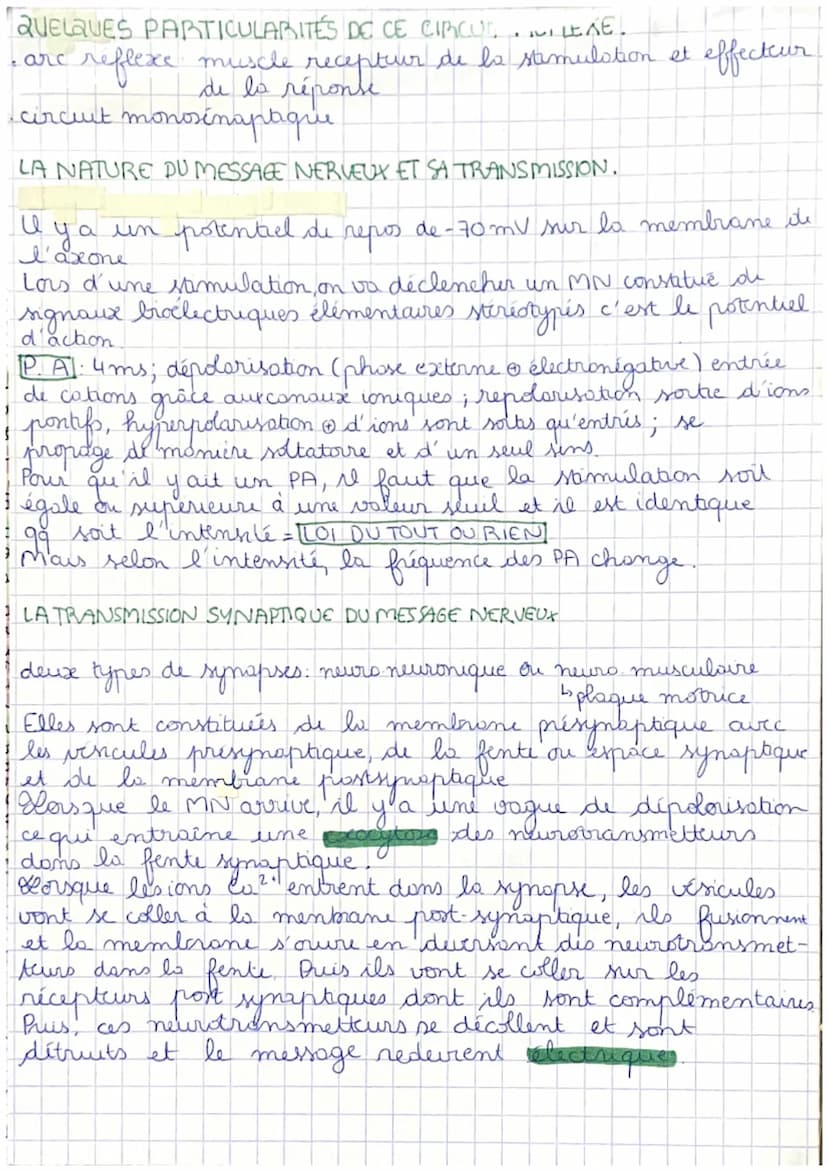 QUELQUES PARTICULARITÉS DE CE CIRCUI
. arc reflexe muscle recepteur de la stimulation et effecteur
de la réponse
. circuit monosinaptique
LA NATURE DU MESSAGE NERVEUX ET SA TRANSMISSION.
Il y a un potentiel de repos de -70mV sur la membrane de
l'axone
Lors d'une stimulation, on va déclencher un MN constitué de
signaux bioélectriques élémentaires stéréotypés c'est le potentiel
d'action
P.A : 4ms; dépolarisation (phase externe ⊕ électronégative) entrée
de cations grâce aux canaux ioniques ; repolarisation sortie d'ions
positifs, hyperpolarisation ⊕ d'ions sont sortis qu'entrés ; se
propage de manière saltatoire et d'un seul sens.
Pour qu'il y ait un PA, il faut que la stimulation soit
égale ou supérieure à une valeur seuil et il est identique
qq soit l'intensité = LOI DU TOUT OU RIEN
Mais selon l'intensité, la fréquence des PA change.
LA TRANSMISSION SYNAPTIQUE DU MESSAGE NERVEUX
deux types de synapses: neuro neuronique ou neuro musculaire
↳ plaque motrice
Elles sont constituées de la membrane présynaptique avec
les vésicules présynaptique, de la fente ou espace synaptique
et de la membrane postsynaptique
Lorsque le MN arrive, il y a une vague de dépolarisation
ce qui entraîne une exocytose des neurotransmetteurs
dans la fente synaptique.
Lorsque les ions Ca²⁺ entrent dans la synapse, les vésicules
vont se coller à la membrane post-synaptique, ils fusionnent
et la membrane s'ouvre en déversant des neurotransmet-
teurs dans la fente. Puis ils vont se coller sur les
récepteurs post synaptiques dont ils sont complémentaires
Puis, ces neurotransmetteurs se décollent et sont
détruits et le message redevient électrique.